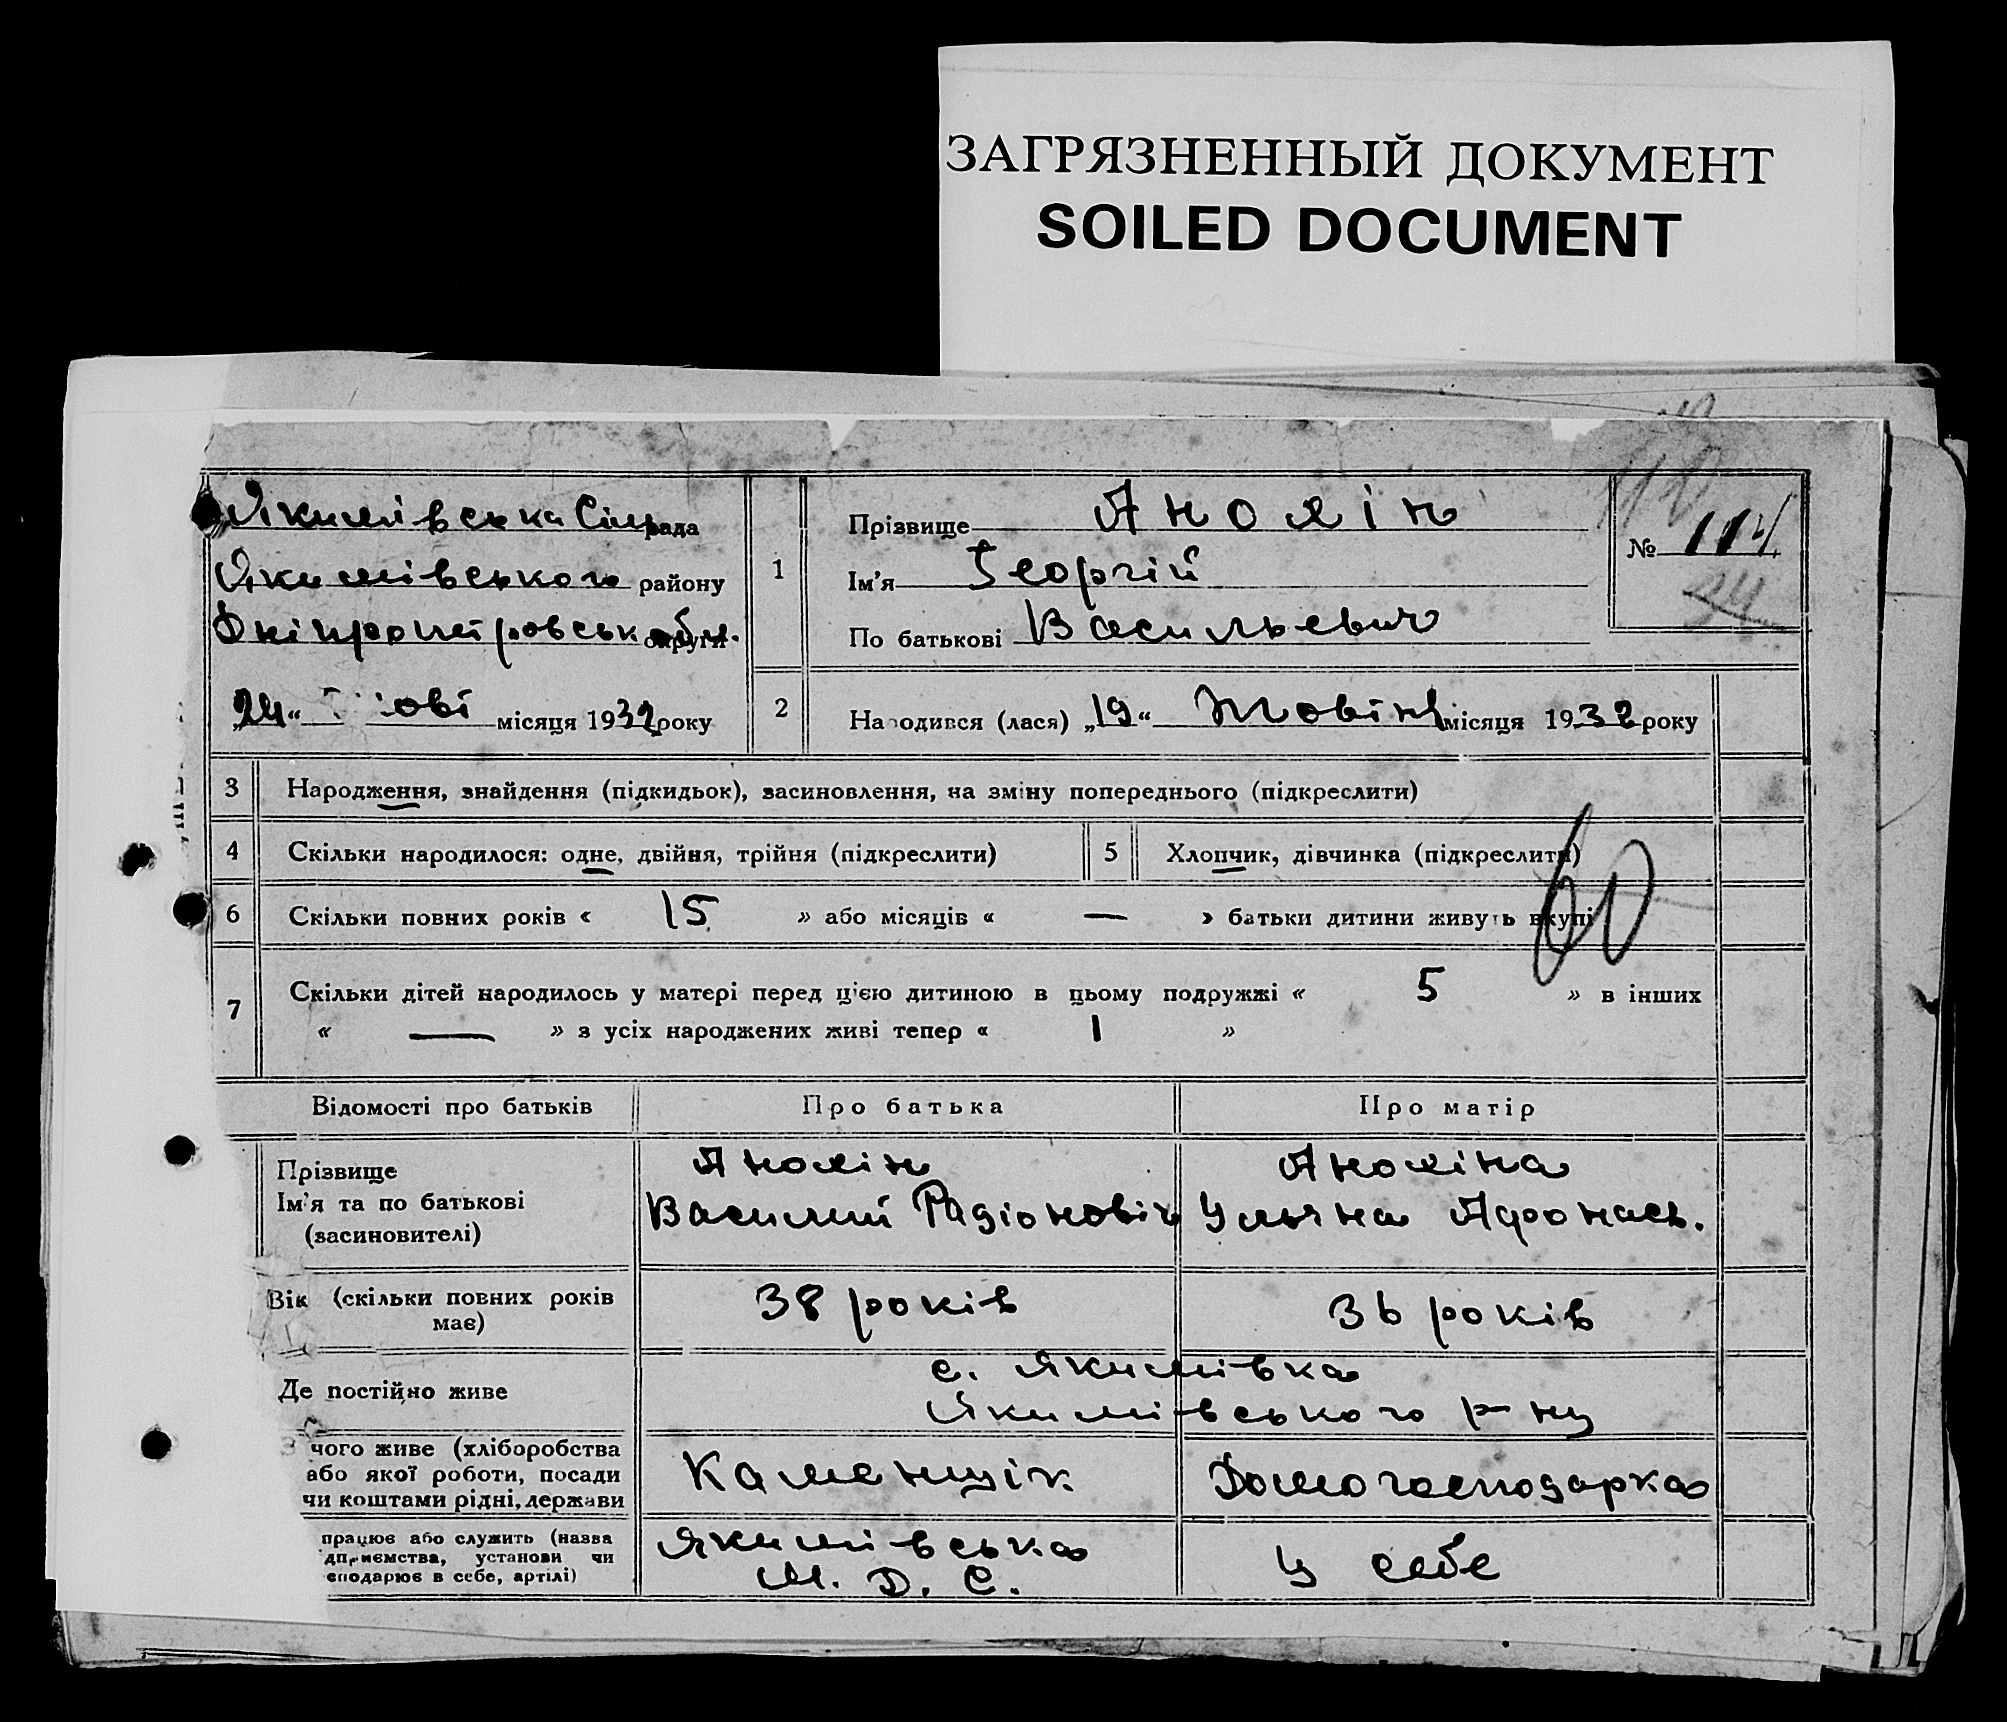 ЗАГРЯЗНЕННЫЙ ДОКУМЕНТ
SOILED DOCUMENT
Якимівська Сільрада
Якимівського району
Дніпропетровськ обл. округи
24 « місяця 1932 року
1
Прізвище Анолін
Ім'я Георгій
По батькові Васильевич
№ 114
34
2
Народився (лася) „19 “ Жовтня місяця 1932 року
3 Народження, знайдення (підкидьок), засиновлення, на зміну попереднього (підкреслити)
4 Скільки народилося: одне, двійня, трійня (підкреслити)
5 Хлопчик, дівчинка (підкреслити)
6 Скільки повних років « 15 » або місяців « — » батьки дитини живуть вкупі
60
7 Скільки дітей народилось у матері перед цією дитиною в цьому подружжі « 5 » в інших
« — » з усіх народжених живі тепер « 1 »
Відомості про батьків Про батька Про матір
Прізвище Анолін Аноліна
Ім'я та по батькові Василий Радіоновіч Ульяна Афонась.
(засиновителі)
Вік (скільки повних років має) 38 років 36 років
Де постійно живе с. Якимівка
Якимівського р-ну
З чого живе (хліборобства
або якої роботи, посади Каменщік Домогосподарка
чи коштами рідні, держави
працює або служить (назва Якимівська
дприємства, установи чи М. Д. С. У себе
сподарює в себе, артілі)